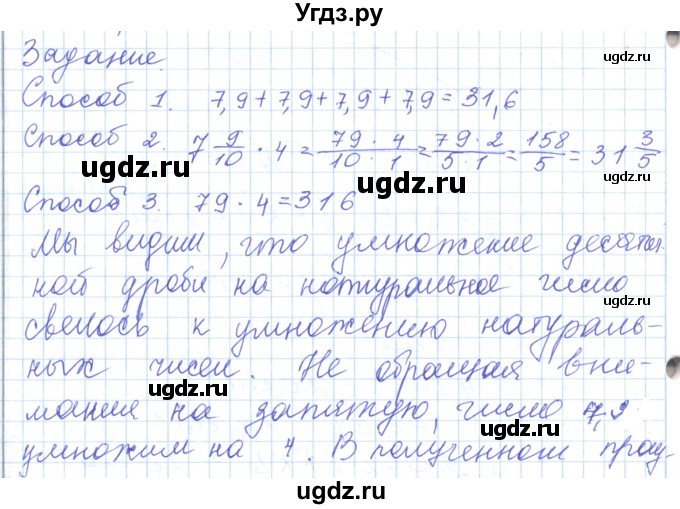 Угдз.ру
Задание.
Способ 1. 7,9 + 7,9 + 7,9 + 7,9 = 31,6
Способ 2. 7 9/10 · 4 = 79 · 4/10 · 1 = 79 · 2/5 · 1 = 158/5 = 31 3/5
Способ 3. 79 · 4 = 316
Мы видим, что умножение десятич-
ной дроби на натуральное число
свелось к умножению натураль-
ных чисел. Не обращая вни-
мания на запятую, число 7,9
умножим на 4. В полученном произ-
ugdz.ru
ugdz.ru
ugdz.ru
ugdz.ru
ugdz.ru
ugdz.ru
ugdz.ru
ugdz.ru
ugdz.ru
ugdz.ru
ugdz.ru